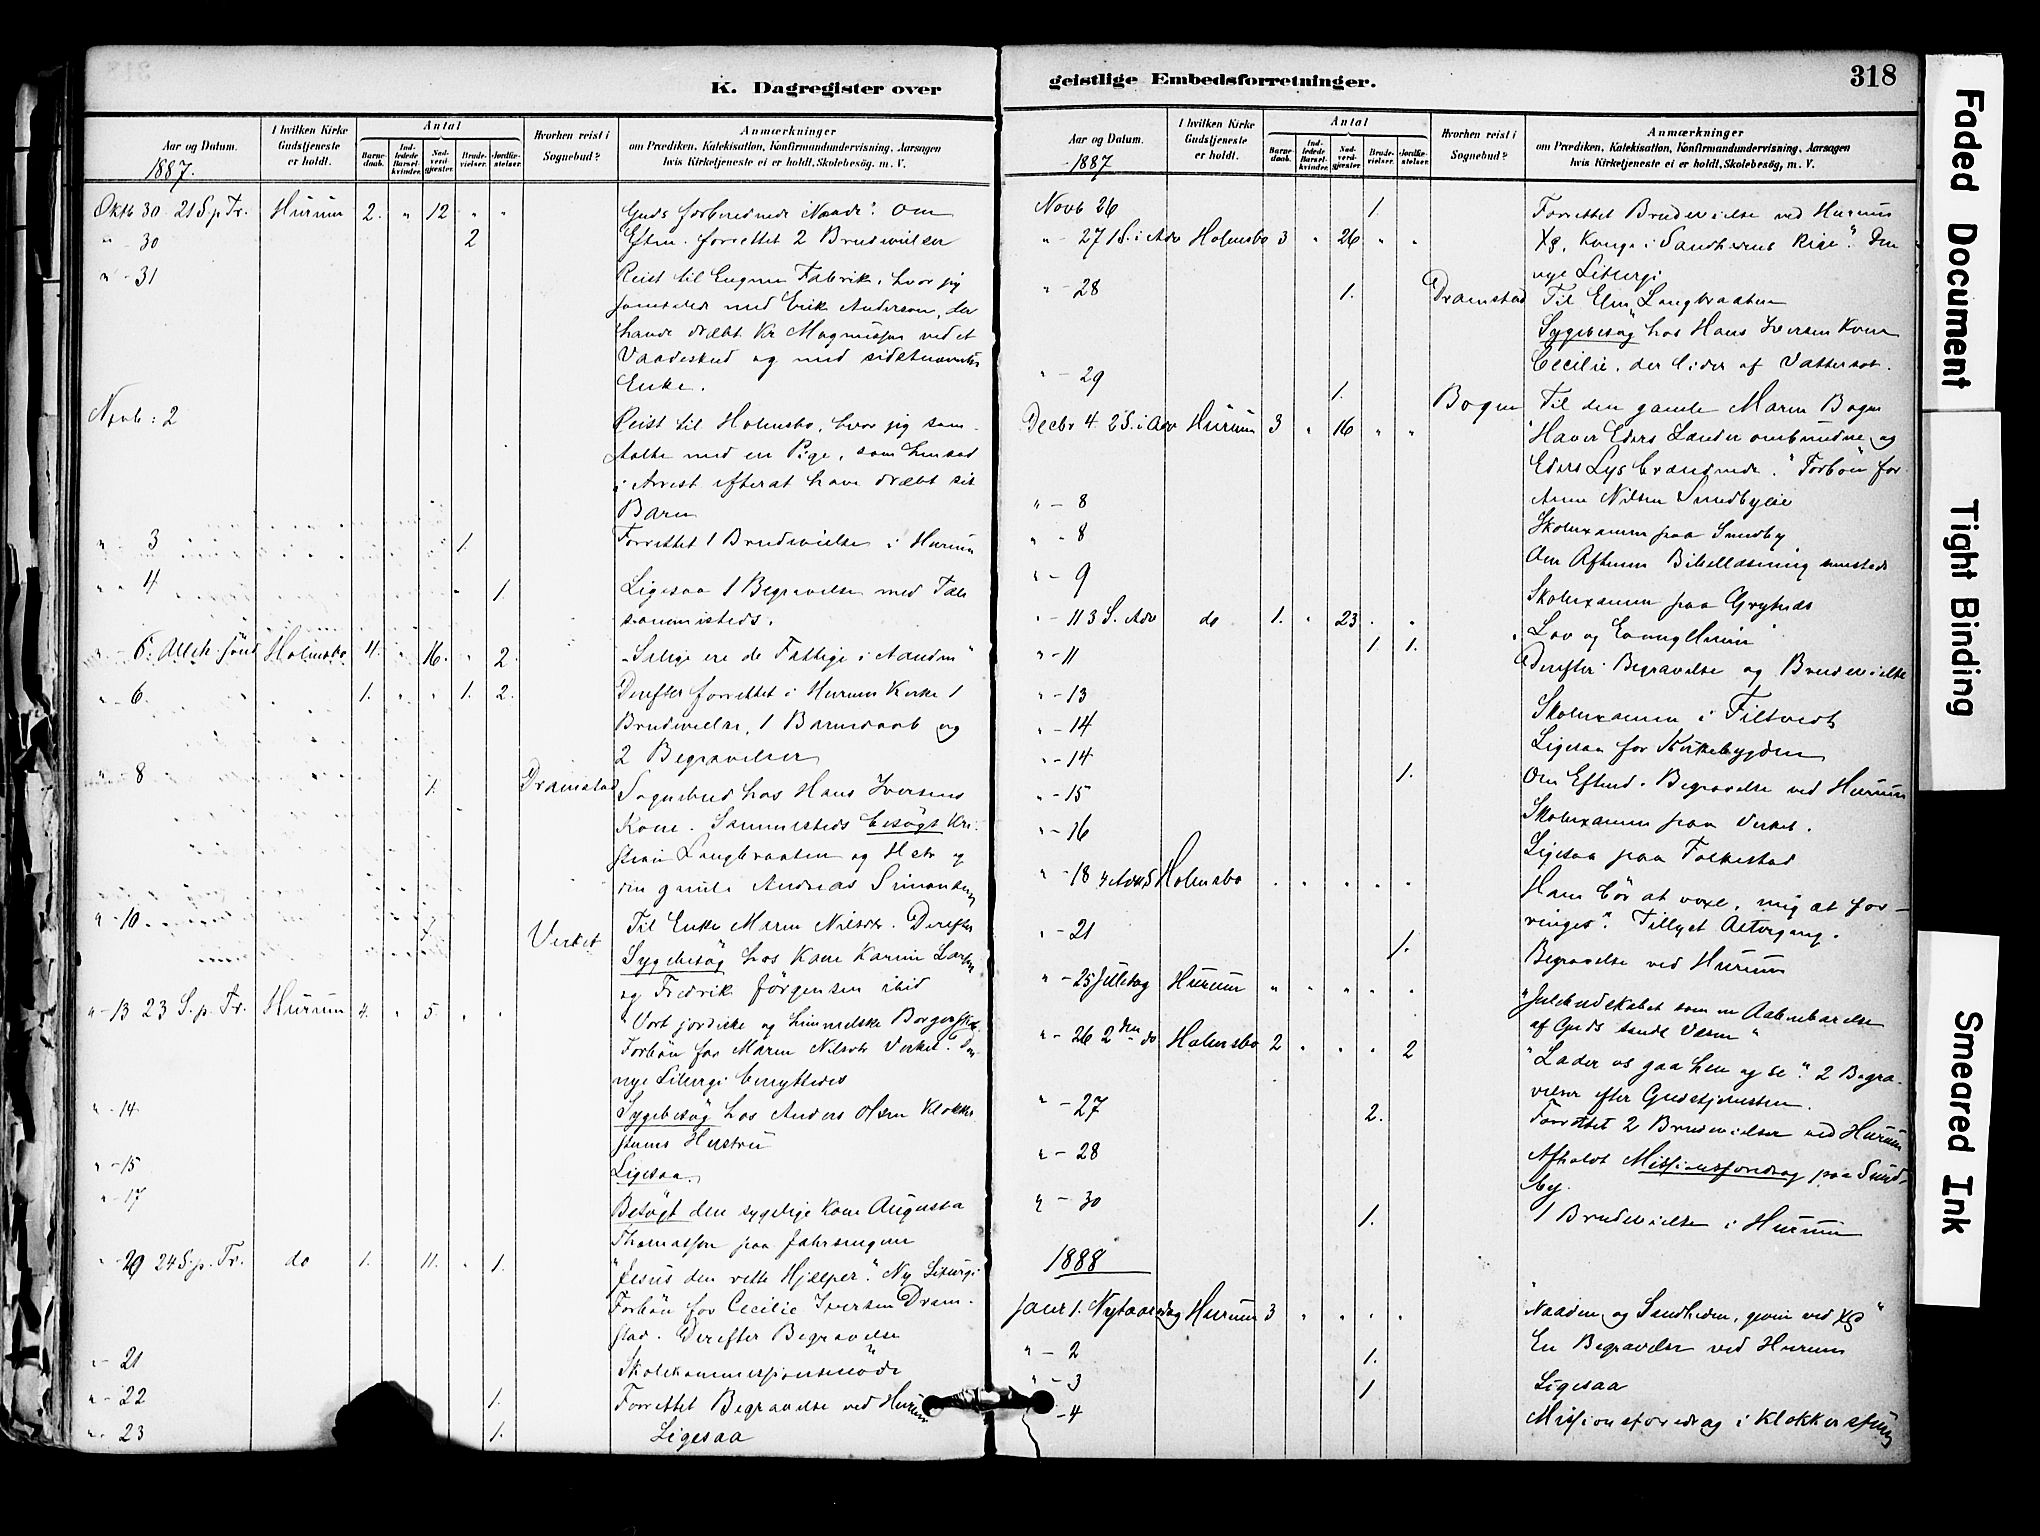 K. Dagregister over
Aar og Datum.
1887.
I hvilken Kirke Gudstjeneste er holdt.
Antal
Barnedaab.
Indledede Barselkvinder.
Nadverdgjæster.
Brudevielser.
Jordfæstelser.
Hvorhen reist i Sognebud?
Anmærkninger
om Prædiken, Katekisation, Konfirmandundervisning, Aarsagen
hvis Kirketjeneste ei er holdt, Skolebesög, m. V.
Oktb 30 21 S. p. Tr. Hurum 2. " 12 " " Guds forberedende Naade". Om
" - 30 2 Eftm. forrettet 2 Brudevielser
" - 31 Reist til Engene Fabrik, hvor jeg
samtalede med Erik Anderson, der
havde dræbt Kr Magnussen ved et
Vaadeskud og med sidstnævntes
Enke.
Novb: 2 Reist til Holmsbo, hvor jeg sam-
talte med en Pige, som hensad
i Arrest efterat have dræbt sit
Barn
" - 3 1. Forrettet 1 Brudevielse i Hurum
" - 4 1. Ligesaa 1 Begravelse med Tale
sammesteds.
" - 6. Alleh. sönd Holmsbo 4. " 16. " 2. "Salige ere de Fattige i Aanden"
" - 6. 1. " " 1. 2. Derefter forrettet i Hurum Kirke 1
Brudevielse, 1 Barnedaab og
2 Begravelser
" - 8 1. Dramstad Sognebud hos Hans Iversens
Kone. Sammesteds besögt Kri-
stian Langbraaten og Hstr og
den gamle Andreas Simonsen
" - 10. 1. Verket Til Enke Maren Nilsdtr. Derefter
Sygebesög hos Kone Karine Larsen
og Fredrik Jörgensen ibid
" - 13 23 S. p. Tr. Hurum 4. " 5. " " "Vort jordiske og himmelske Borgerskab.
Forbön for Maren Nilsdtr Verket. Den
nye Liturgi benyttedes
" - 14 Sygebesög hos Anders Olsen Klokker-
stuens Hustru
" - 15 Ligesaa.
" - 17 Besögt den sygelige Kone Augusta
Thomassen paa Jahrsengen
" - 20 24 S. p. Tr. do 1. 11. " 1. "Jesus den rette Hjælper". Ny Liturgi
Forbön for Cecilie Iversen Dram-
stad. Derefter Begravelse
" - 21 Skolekommissionsmöde
" - 22 1. Forrettet Begravelse ved Hurum
" - 23 1. Ligesaa
geistlige Embedsforretninger.
318
Aar og Datum.
1887
I hvilken Kirke Gudstjeneste er holdt.
Antal
Barnedaab.
Indledede Barselkvinder.
Nadverdgjæster.
Brudevielser.
Jordfæstelser.
Hvorhen reist i Sognebud?
Anmærkninger
om Prædiken, Katekisation, Konfirmandundervisning, Aarsagen
hvis Kirketjeneste ei er holdt, Skolebesög, m. V.
Novb 26 1. Forrettet Brudevielse ved Hurum
" - 27 1 S. i Adv Holmsbo 3 " 26 " " Xs, Konge i Sandhedens Rige". Den
nye Liturgi
" - 28 1. Dramstad Til Elen Langbraaten
Sygebesög hos Hans Iversen Kone
Cecilie, der lider af Vattersot.
" - 29 1. Bogen Til den gamle Maren Bogen
Decbr 4. 2 S. i Adv Hurum 3 " 16 " " "Haver Eders Lænder ombundne og
Eders Lys brændende." Forbön for
Anne Nilsen Sundbyeie
" - 8 Skolexamen paa Sundby
" - 8 Om Aftenen Bibellæsning sammesteds
" - 9 Skolexamen paa Grytnes
" - 11 3 S. Adv do 1. " 23 " " "Lov og Evangelium"
" - 11 1 1. Derefter Begravelse og Brudevielse
" - 13 Skolexamen i Filtvedt
" - 14 Ligesaa for Kirkebygden
" - 14 1. Om Eftmd. Begravelse ved Hurum
" - 15 Skolexamen paa Verket.
" - 16 Ligesaa paa Tofkestad
" - 18 4 Adv S Holmsbo " " " " " Ham bör at voxe, mig at for-
ringes". Tillyst Altergang.
" - 21 1. Begravelse ved Hurum
" - 25 Juledag Hurum " " " " " "Julebudskabet som en Aabenbarelse
af Guds sande Væsen"
" - 26 2den do Holmsbo 2 " " " 2 "Lader os gaa hen og se". 2 Begra-
velser efter Gudstjenesten.
" - 27 2. Forrettet 2 Brudevielser ved Hurum
" - 28 Afholdt Missionsforedrag paa Sund-
by.
" - 30 1. 1 Brudevielse i Hurum
1888
Januar 1. Nytaarsdag Hurum 3 " " " " "Naaden og Sandheden, given ved Xs"
" - 2 1. En Begravelse ved Hurum
" - 3 1 Ligesaa
- 4 Missionsforedrag i Klokkerstuen
Faded Document
Tight Binding
Smeared Ink